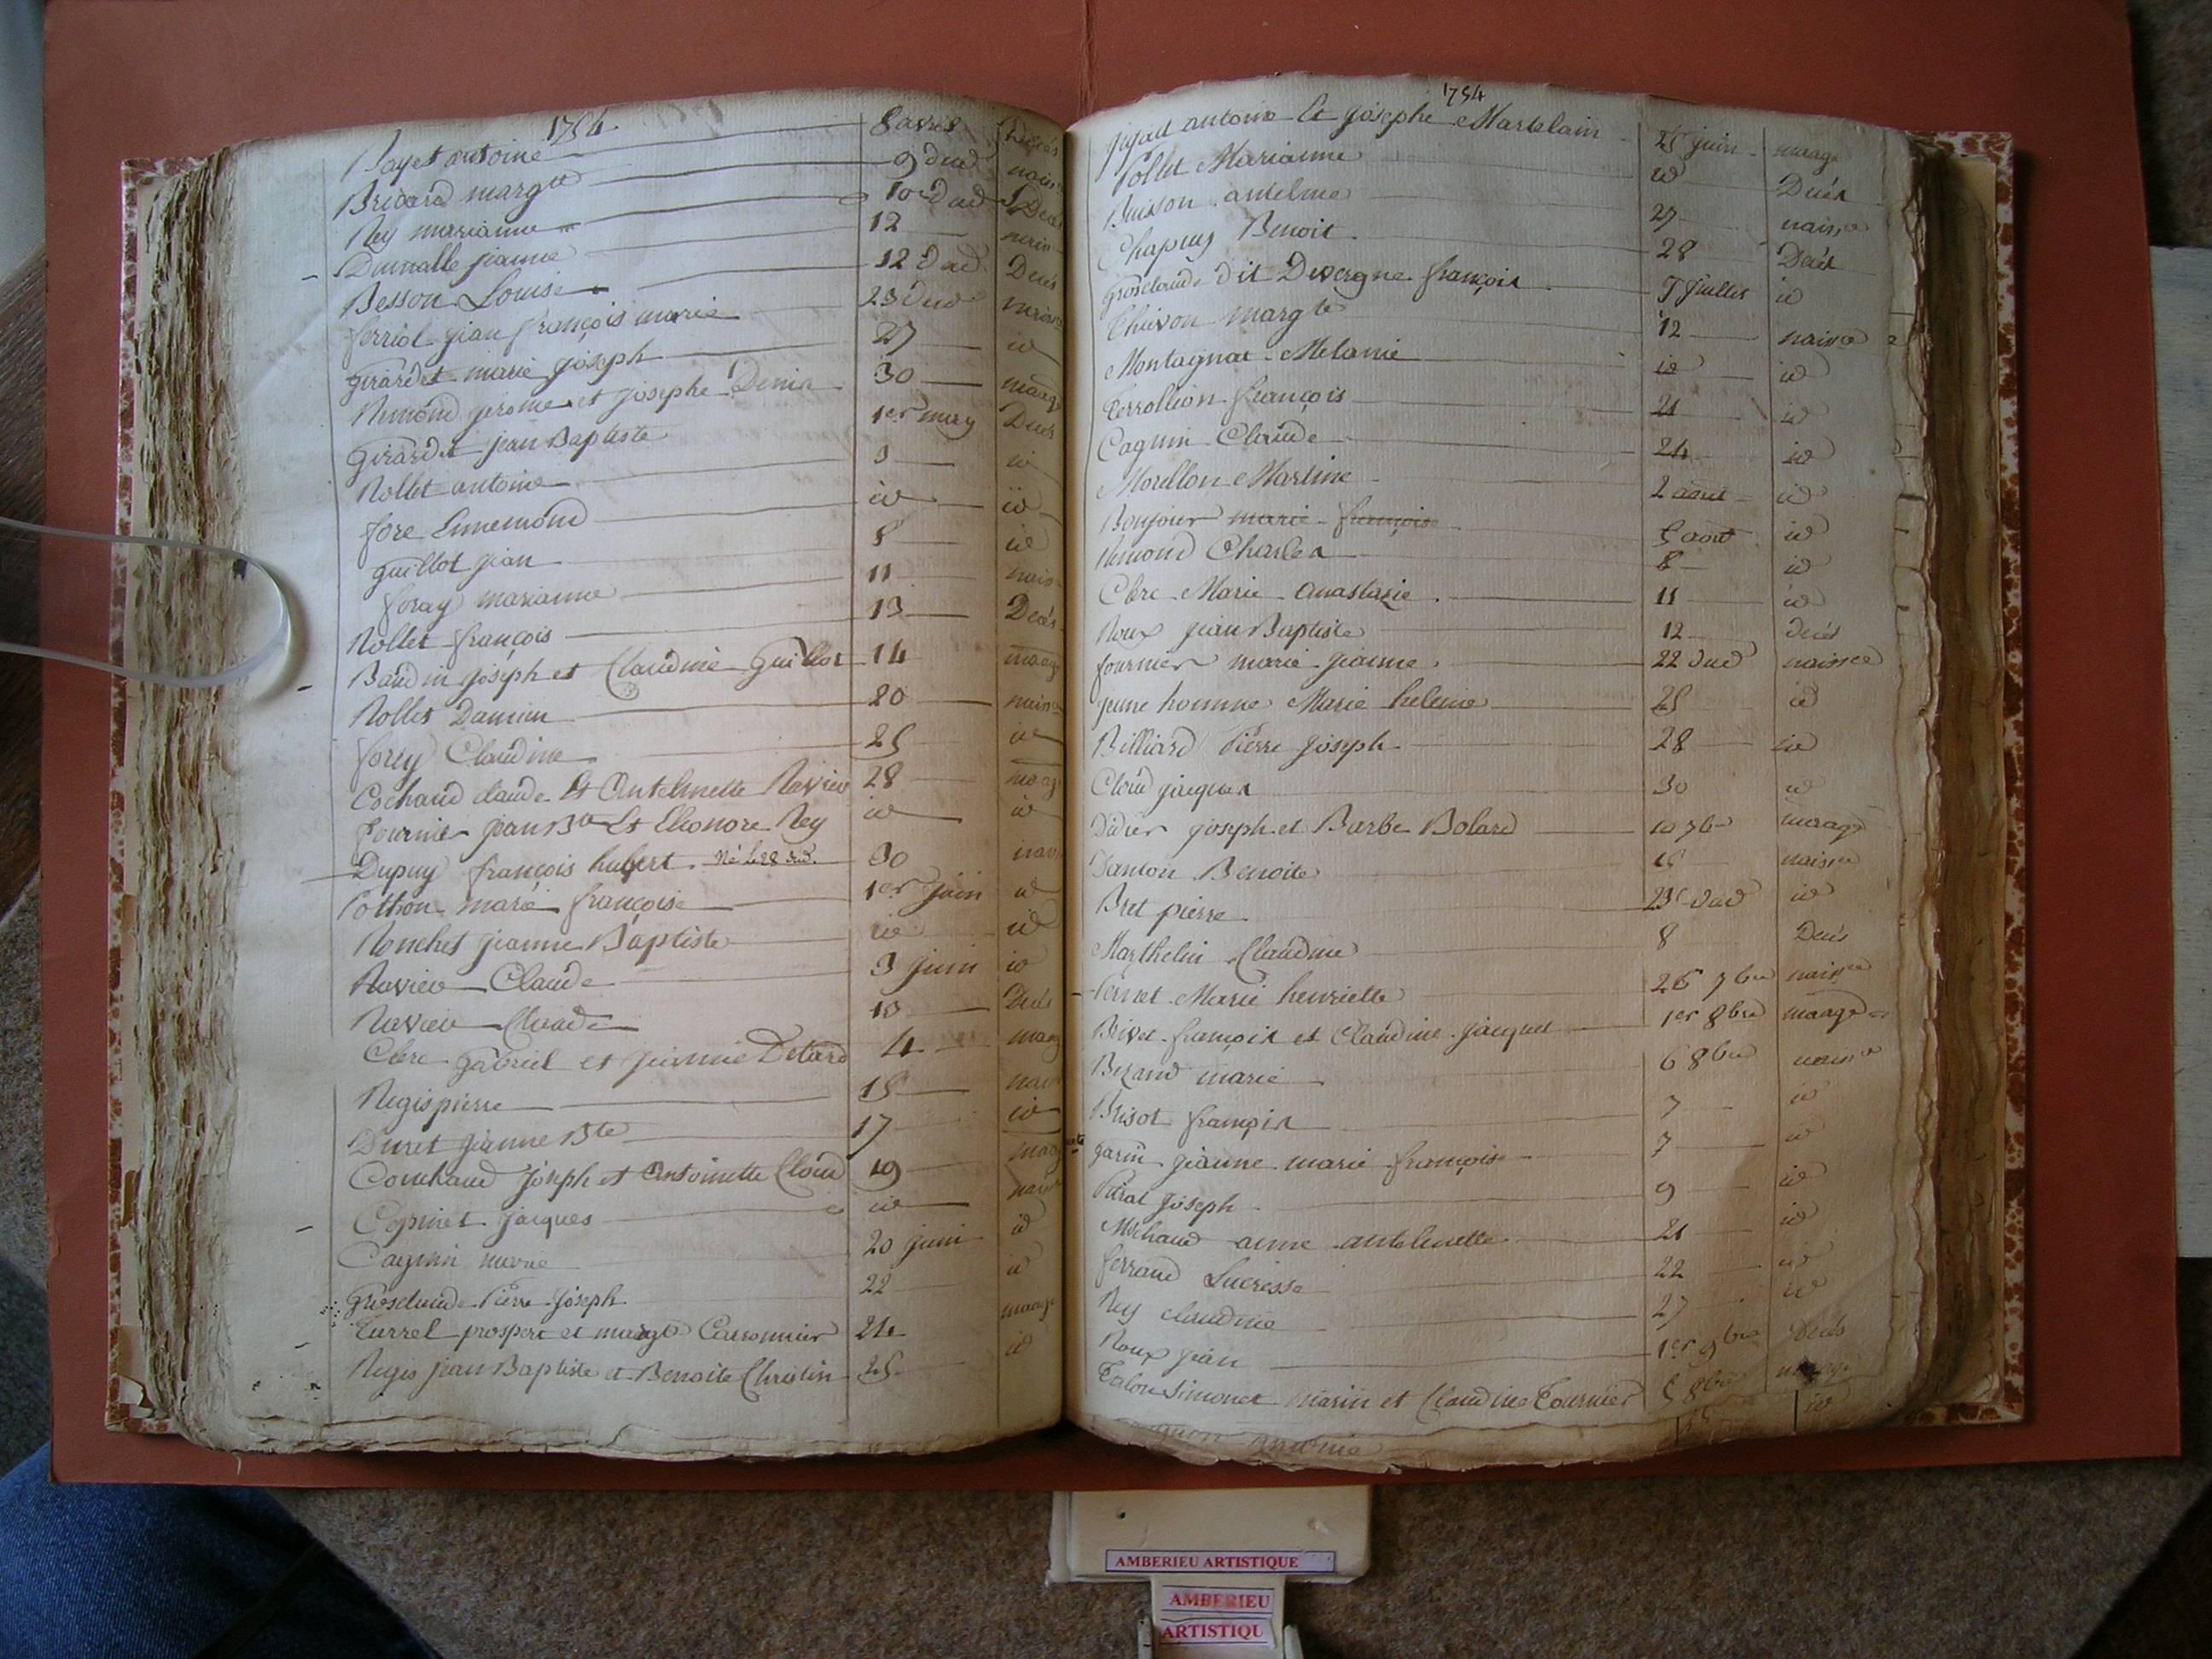 1754
Payet antoine 8 avril Decés
Bricard margte 9 dud nais
Rey marianne 10 Dud Decé
Dumalle jeanne 12 nais
Besson Louise 12 Dud Deces
ferriol jean françois marie 23 Dud naiss
girardet marie joseph 27 id
Remond jerome et josephe Denis 30 mariag
Girardet jean Baptiste 1er may Deces
Rollet antoine 3 id
fore Ennemond id id
guillot jean 8 id
foray marianne 11 nais
Rollet françois 13 Decés
Baudin joseph et Claudine Guillot 14 mariag
Rollet Damien 20 naiss
forey Claudine 25 id
Cochaud claude Et Antelmette Ravier 28 mariag
fournier jean Bte Et Eleonore Rey id id
Dupuy françois hubert Né le 28 dud. 30 nais
Pothon marie françoise 1er juin id
Ronchet jeanne Baptiste id id
Ravier Claude 3 juin id
Ravier Claude 13 Decés
Clerc gabriel et jeanne Detard 4 mariag
Regis pierre 15 nais
Duret jeanne Bte 17 id
Couchaud joseph et Antoinette Cloud 19 mariag
Copinet jacques id naiss
Cagnin marie 20 juin id
Grosclaude Pierre Joseph 22 id
Turrel prospere et margte Carronnier 24 mariage
Regis jean Baptiste et Benoite Christin 25 id
1754
jujat antoine Et josephe Martelain 25 juin mariage
Pollet Marianne id Decés
Buisson antelme 27 naissce
Chapuy Benoit 28 Decés
Grosclaude dit Divergne françois 9 juillet id
Thevon margte 12 naissce
Montagnat Melanie id id
Terrollion françois 21 id
Cagnin Claude 24 id
Morellon Martine 2 aout id
Bonjour marie françoise 5 aout id
Remond Charles 8 id
Clerc Marie Anastasie 11 id
Roux jean Baptiste 12 decés
fournier marie jeanne 22 dud naissce
jeune homme Marie helene 25 id
Billiard Pierre joseph 28 id
Cloud jacques 30 id
Didier joseph et Barbe Bolard 10 7bre mariage
Danton Benoite 15 naissce
Bret pierre 25 dud id
Marthelin Claudine 8 Decés
Pernet Marie henriette 26 7bre naissce
Brivet françois et Claudine jacquet 1er 8bre mariage
Bezand marie 6 8bre naissce
Brisot françois 7 id
garin jeanne marie françoise 7 id
Pural joseph 9 id
Michaud anne antelmette 21 id
ferrand Lucresse 22 id
Rey claudine 27 id
Roux jean 1er 9bre Decés
Talon Simonet marin et Claudine Tournier 5 8bre mariage
id
AMBERIEU ARTISTIQUE
AMBERIEU
ARTISTIQU